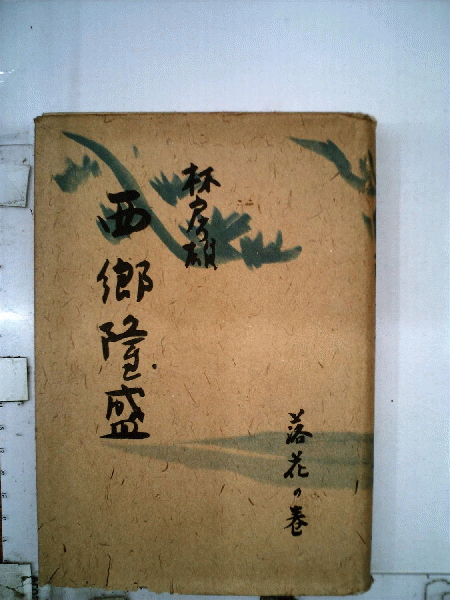 林房雄
西郷隆盛
落花の巻